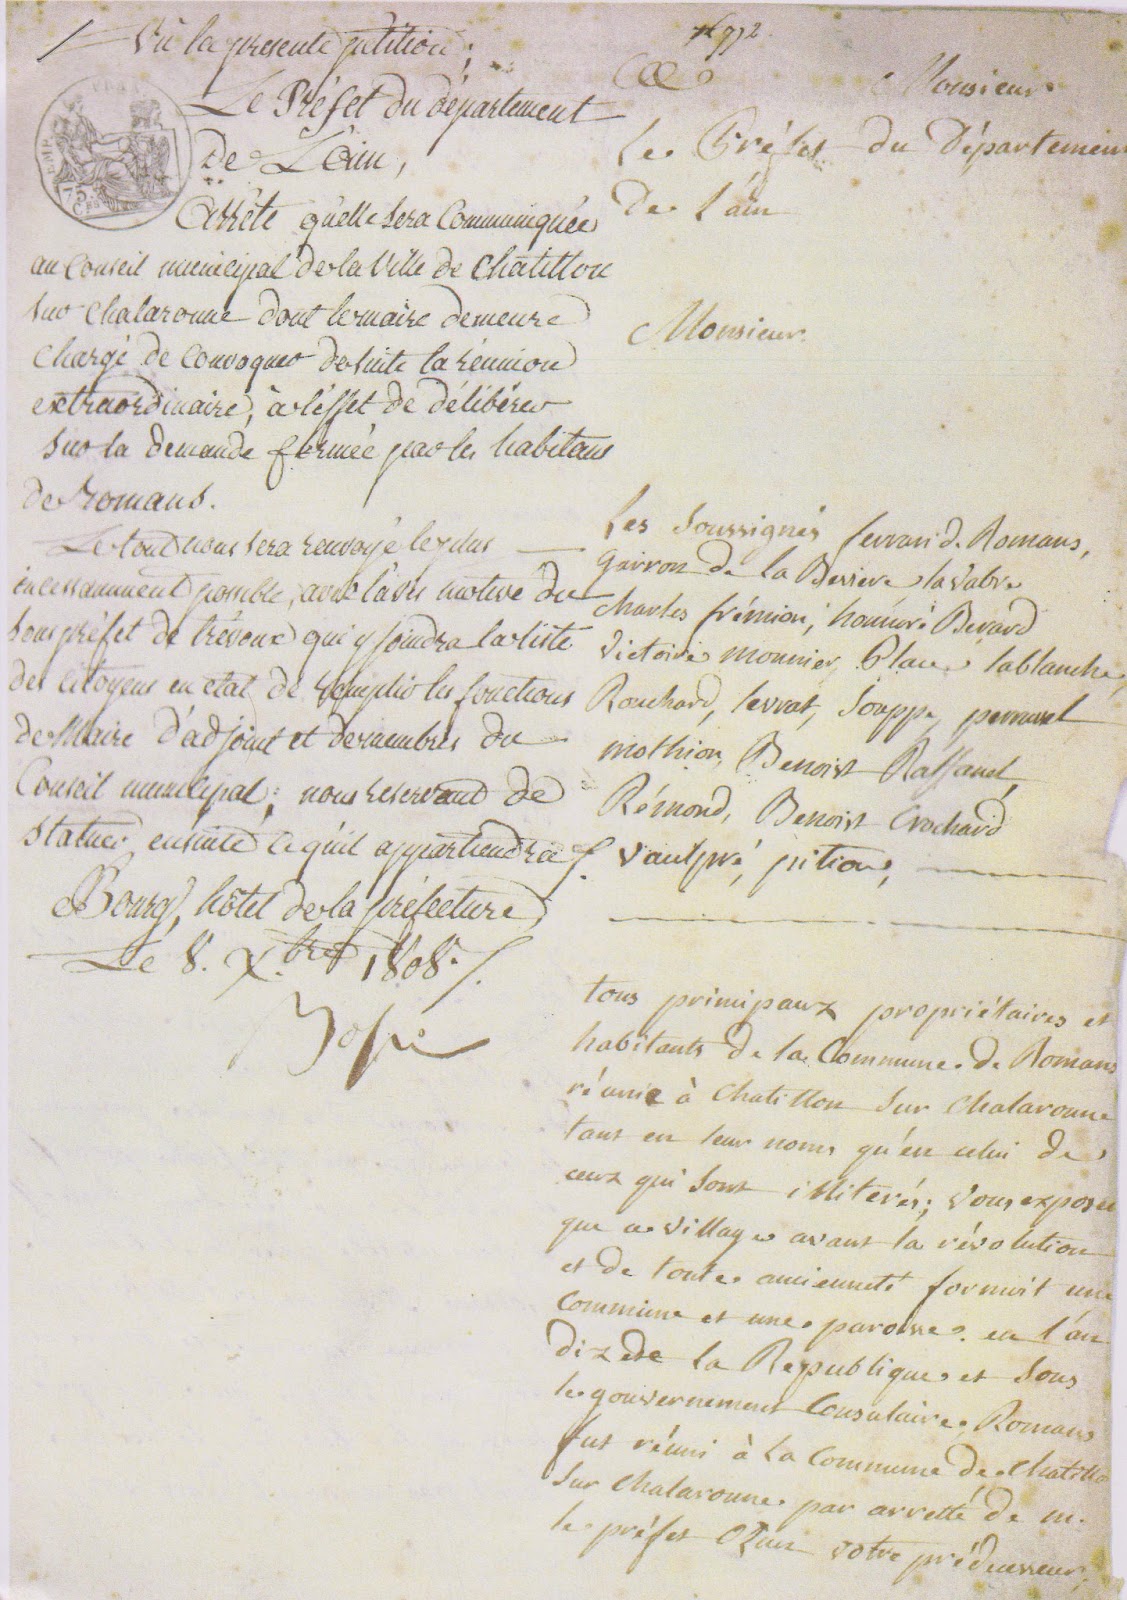 Vu la presente pétition;
Le Préfet du département
De L'ain,
Arrête qu'elle sera Communiquée
au Conseil municipal de la Ville de Chatillon
sur chalaronne dont le maire demeure
chargé de Convoquer de suite la réunion
extraordinaire, à l'effet de délibérer
sur la demande formée par les habitans
de Romans.
Le tout nous sera renvoyé le plus
incessamment possible, avec l'avis motivé du
sous préfet de trévoux qui y joindra la liste
des citoyens en état de remplir les fonctions
de Maire D'adjoint et de membres du
Conseil municipal; nous reservant de
statuer ensuite ce qu'il appartiendra
Bourg, hôtel de la préfecture,
Le 8. Xbre 1808.
Monsieur
Le Préfet du Département
De l'ain
Monsieur
Les Soussignés ferrand. Romans,
garron de la Beviere, lavabre
Charles frémion, honnoré Berard
Victoire monnier, Blanc lablanche,
Rouchard, levrat, Souppe, pernurel
mothion, Benoist Raffanel,
Rémond, Benoist Crochard
Vaulpré, pition,
tous principaux propriétaires et
habitants de la Commune de Romans
réunie à Chatillon Sur Chalaronne
tant en leur noms qu'en celui de
ceux qui sont illiterés; Vous expose
que ce village avant la révolution
et de toute ancienneté formoit une
Commune et une paroisse. en l'an
dix de la Republique et sous
le gouvernement Consulaire, Romans
fut réuni à la Commune de Chatillo
Sur Chalaronne par arretté de m.
le préfet Ozun votre prédecesseur;